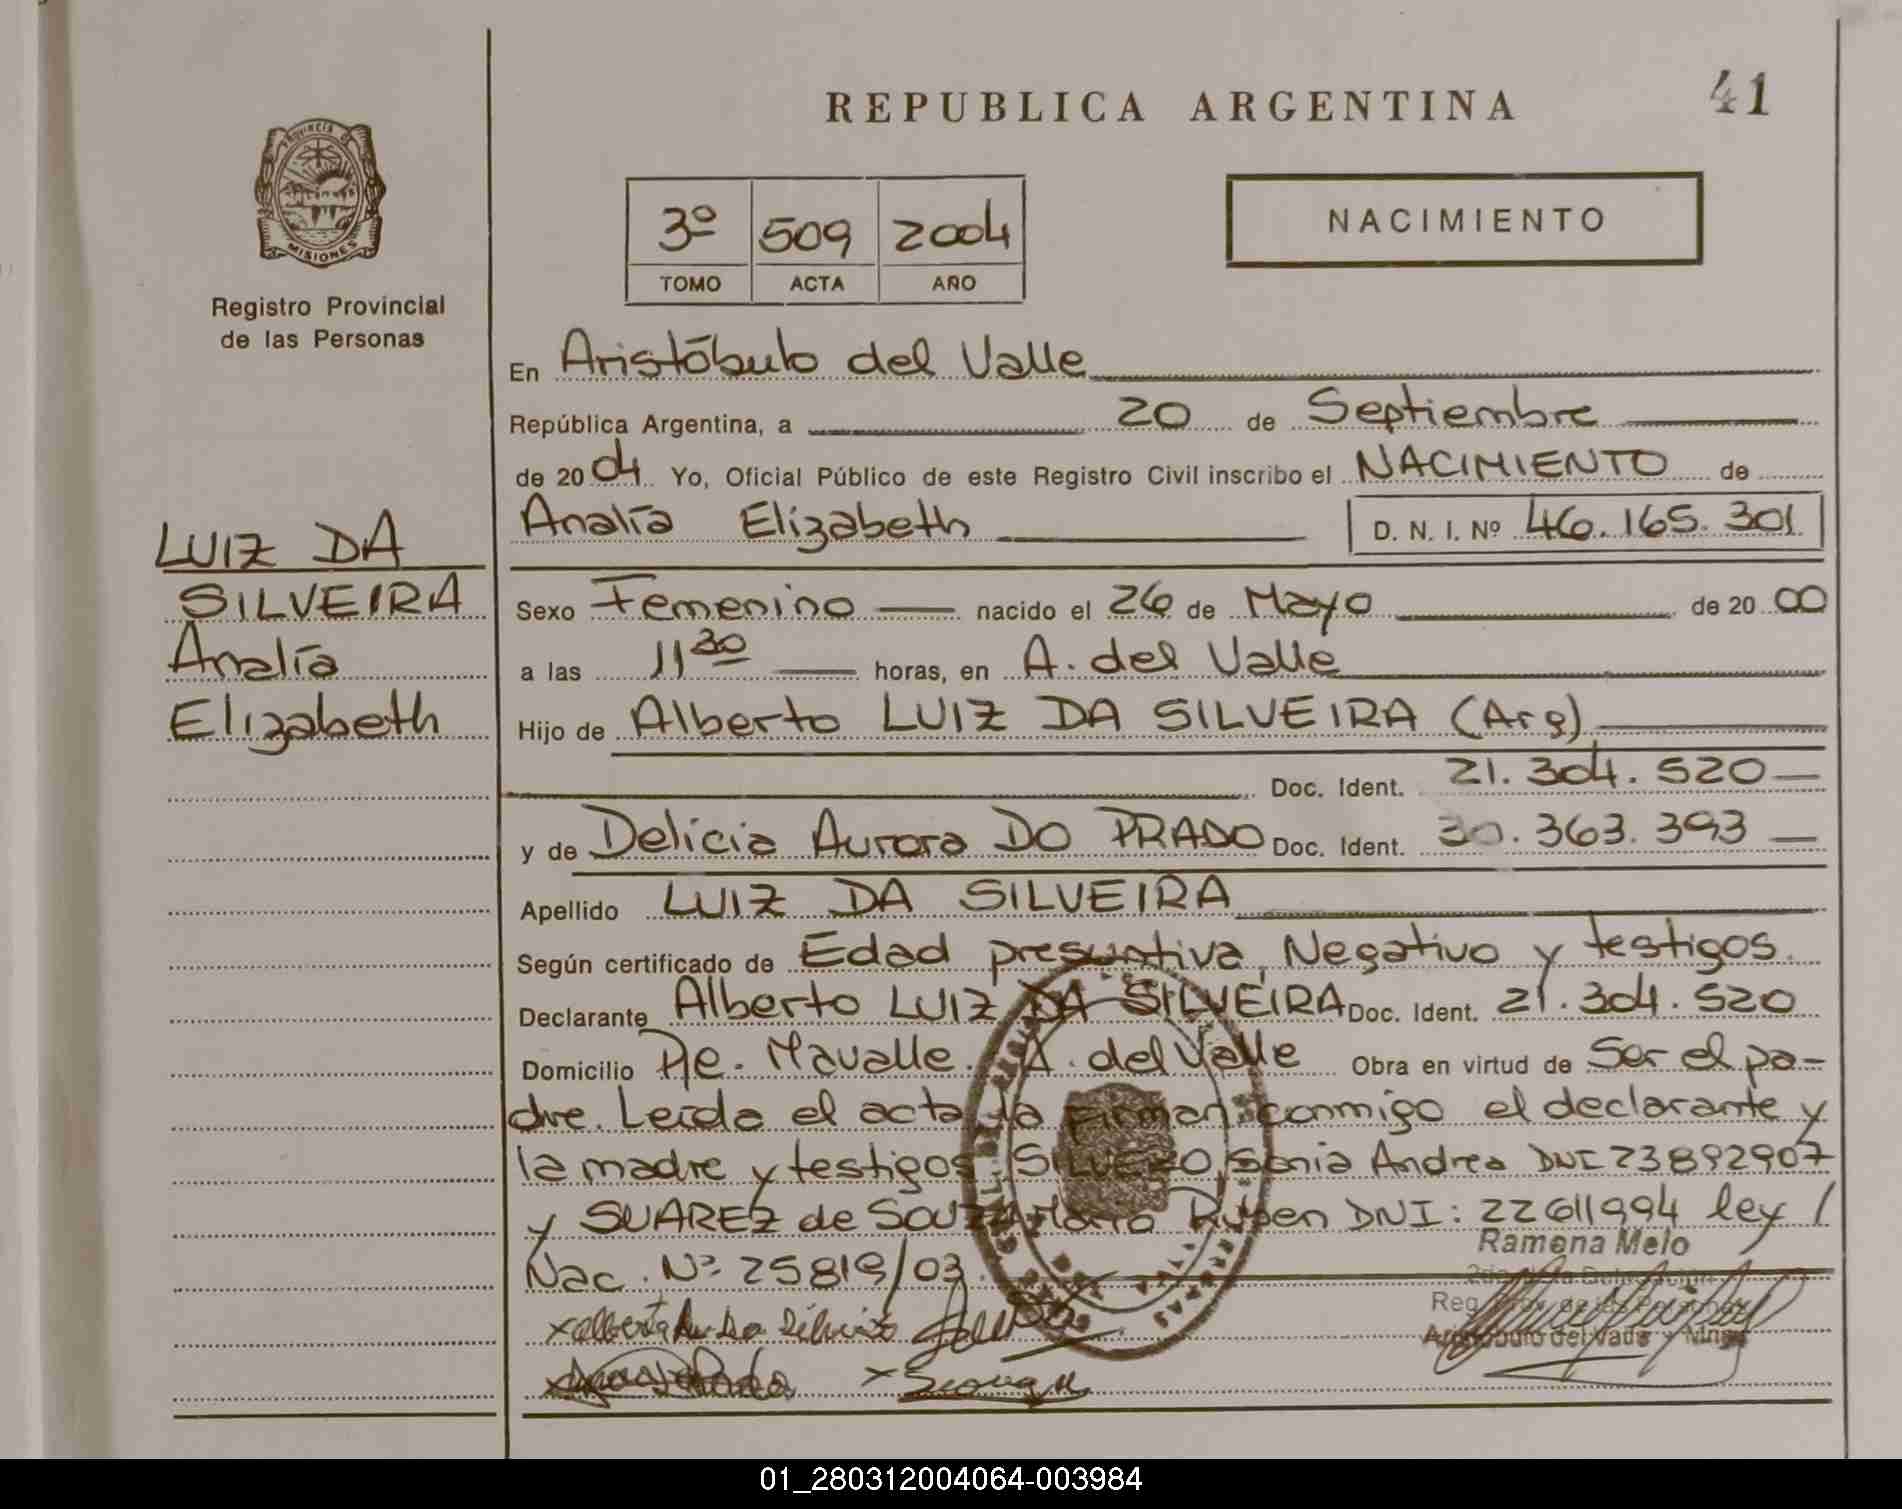 REPUBLICA ARGENTINA
41
PROVINCIA DE
MISIONES
Registro Provincial
de las Personas
3º 509 2004
TOMO ACTA AÑO
NACIMIENTO
En Aristóbulo del Valle
República Argentina, a 20 de Septiembre
de 2004 Yo, Oficial Público de este Registro Civil inscribo el NACIMIENTO de
Analía Elizabeth D. N. I. Nº 46.165.301
LUIZ DA
SILVEIRA
Analía
Elizabeth
Sexo Femenino nacido el 26 de Mayo de 2000
a las 11 30 horas, en A. del Valle
Hijo de Alberto LUIZ DA SILVEIRA (Arg)
Doc. Ident. 21.304.520
y de Delicia Aurora DO PRADO Doc. Ident. 30.363.393
Apellido LUIZ DA SILVEIRA
Según certificado de Edad presuntiva, Negativo y testigos.
Declarante Alberto LUIZ DA SILVEIRA Doc. Ident. 21.304.520
Domicilio Pje. Mavalle. A. del Valle Obra en virtud de Ser el pa-
dre. Leída el acta la firman conmigo el declarante y
la madre y testigos. SILVERO, Sonia Andrea DNI 23892907
y SUAREZ de SOUZA Mario Ruben DNI: 22611994 ley
Nac. Nº 25819/03.
Ramona Melo
Reg. Prov. de las Personas
Aristóbulo del Valle - Mnes
01_280312004064-003984